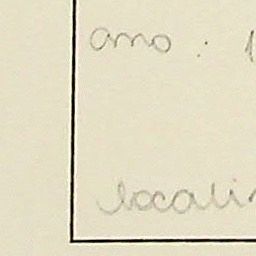 ano : 1
locali